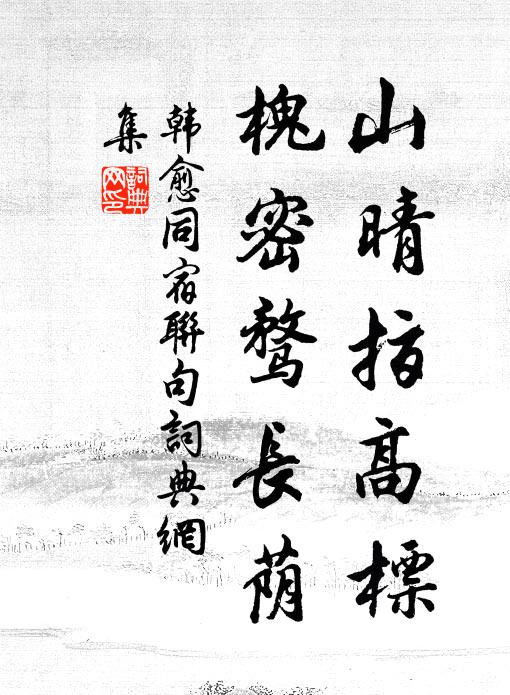 山晴指高標
槐密鶩長蔭
韓愈同宿聯句詞典網
集
詞典
网印